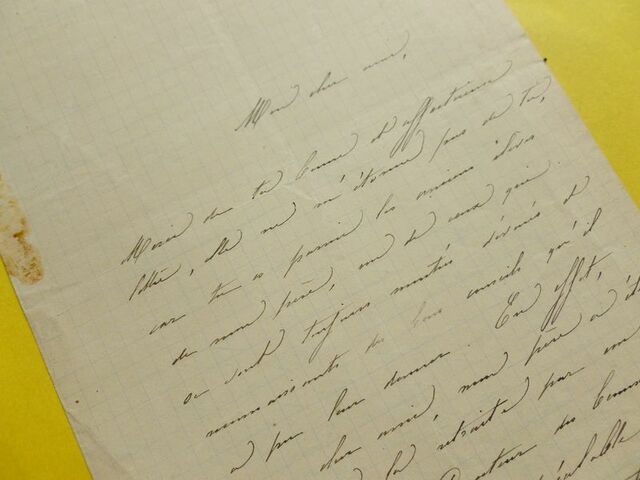 Mon cher ami,
Merci de ta bonne et affectueuse
lettre, elle ne m'étonne pas de toi,
car tu as parmi les anciens élèves
de mon père, un de ceux qui
se sont toujours montrés dévoués et
reconnaissants des bons conseils qu'il
a pu leur donner. En effet,
cher ami, mon père a été
la retraite par un
Directeur des